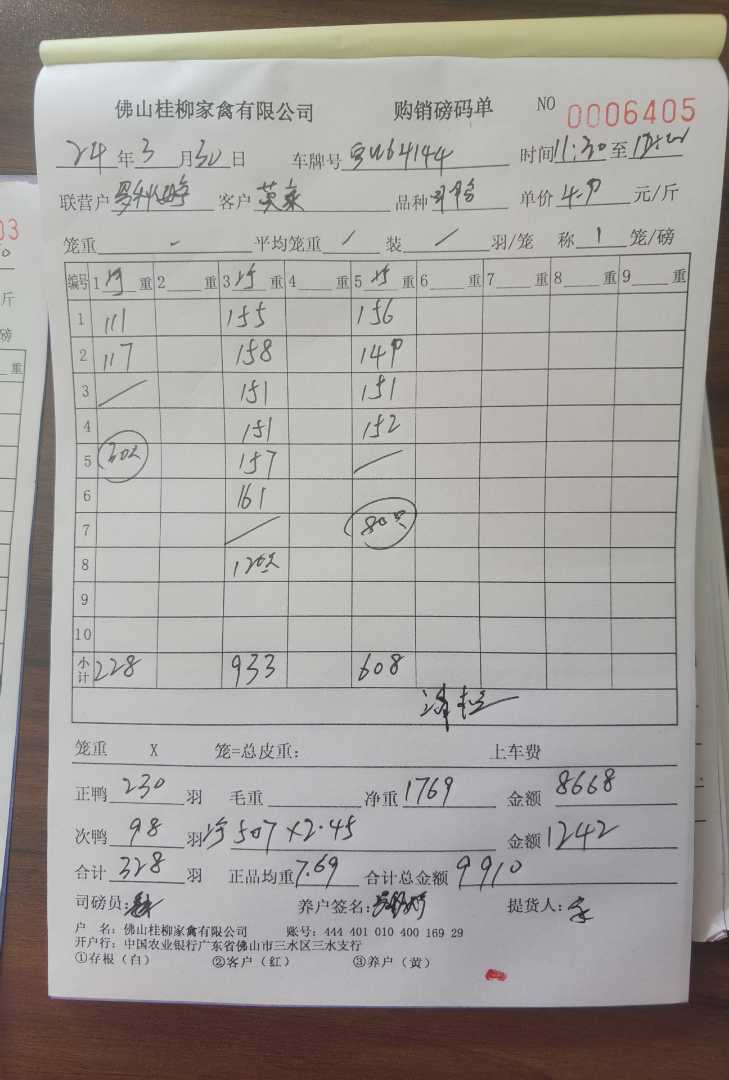 佛山桂柳家禽有限公司 购销磅码单 NO 0006405
24 年 3 月 30 日 车牌号 64144 时间 11:30 至
联营户 客户 英家 品种 单价 4.9 元/斤
笼重 - 平均笼重 / 装 / 羽/笼 称 1 笼/磅
编号 1 净 重 2 重 3 净 重 4 重 5 净 重 6 重 7 重 8 重 9 重
1 111 155 156
2 117 158 149
3 / 151 151
4 151 152
5 30只 157 /
6 161
7 / 80只
8 120只
9
10
小计 228 933 608
净重
笼重 X 笼=总皮重: 上车费
正鸭 230 羽 毛重 净重 1769 金额 8668
次鸭 98 羽 净 507 x 2.45 金额 1242
合计 328 羽 正品均重 7.69 合计总金额 9910
司磅员: 养户签名: 提货人:
户 名: 佛山桂柳家禽有限公司 账号: 444 401 010 400 169 29
开户行: 中国农业银行广东省佛山市三水区三水支行
①存根(白) ②客户(红) ③养户(黄)
03
斤
磅
重